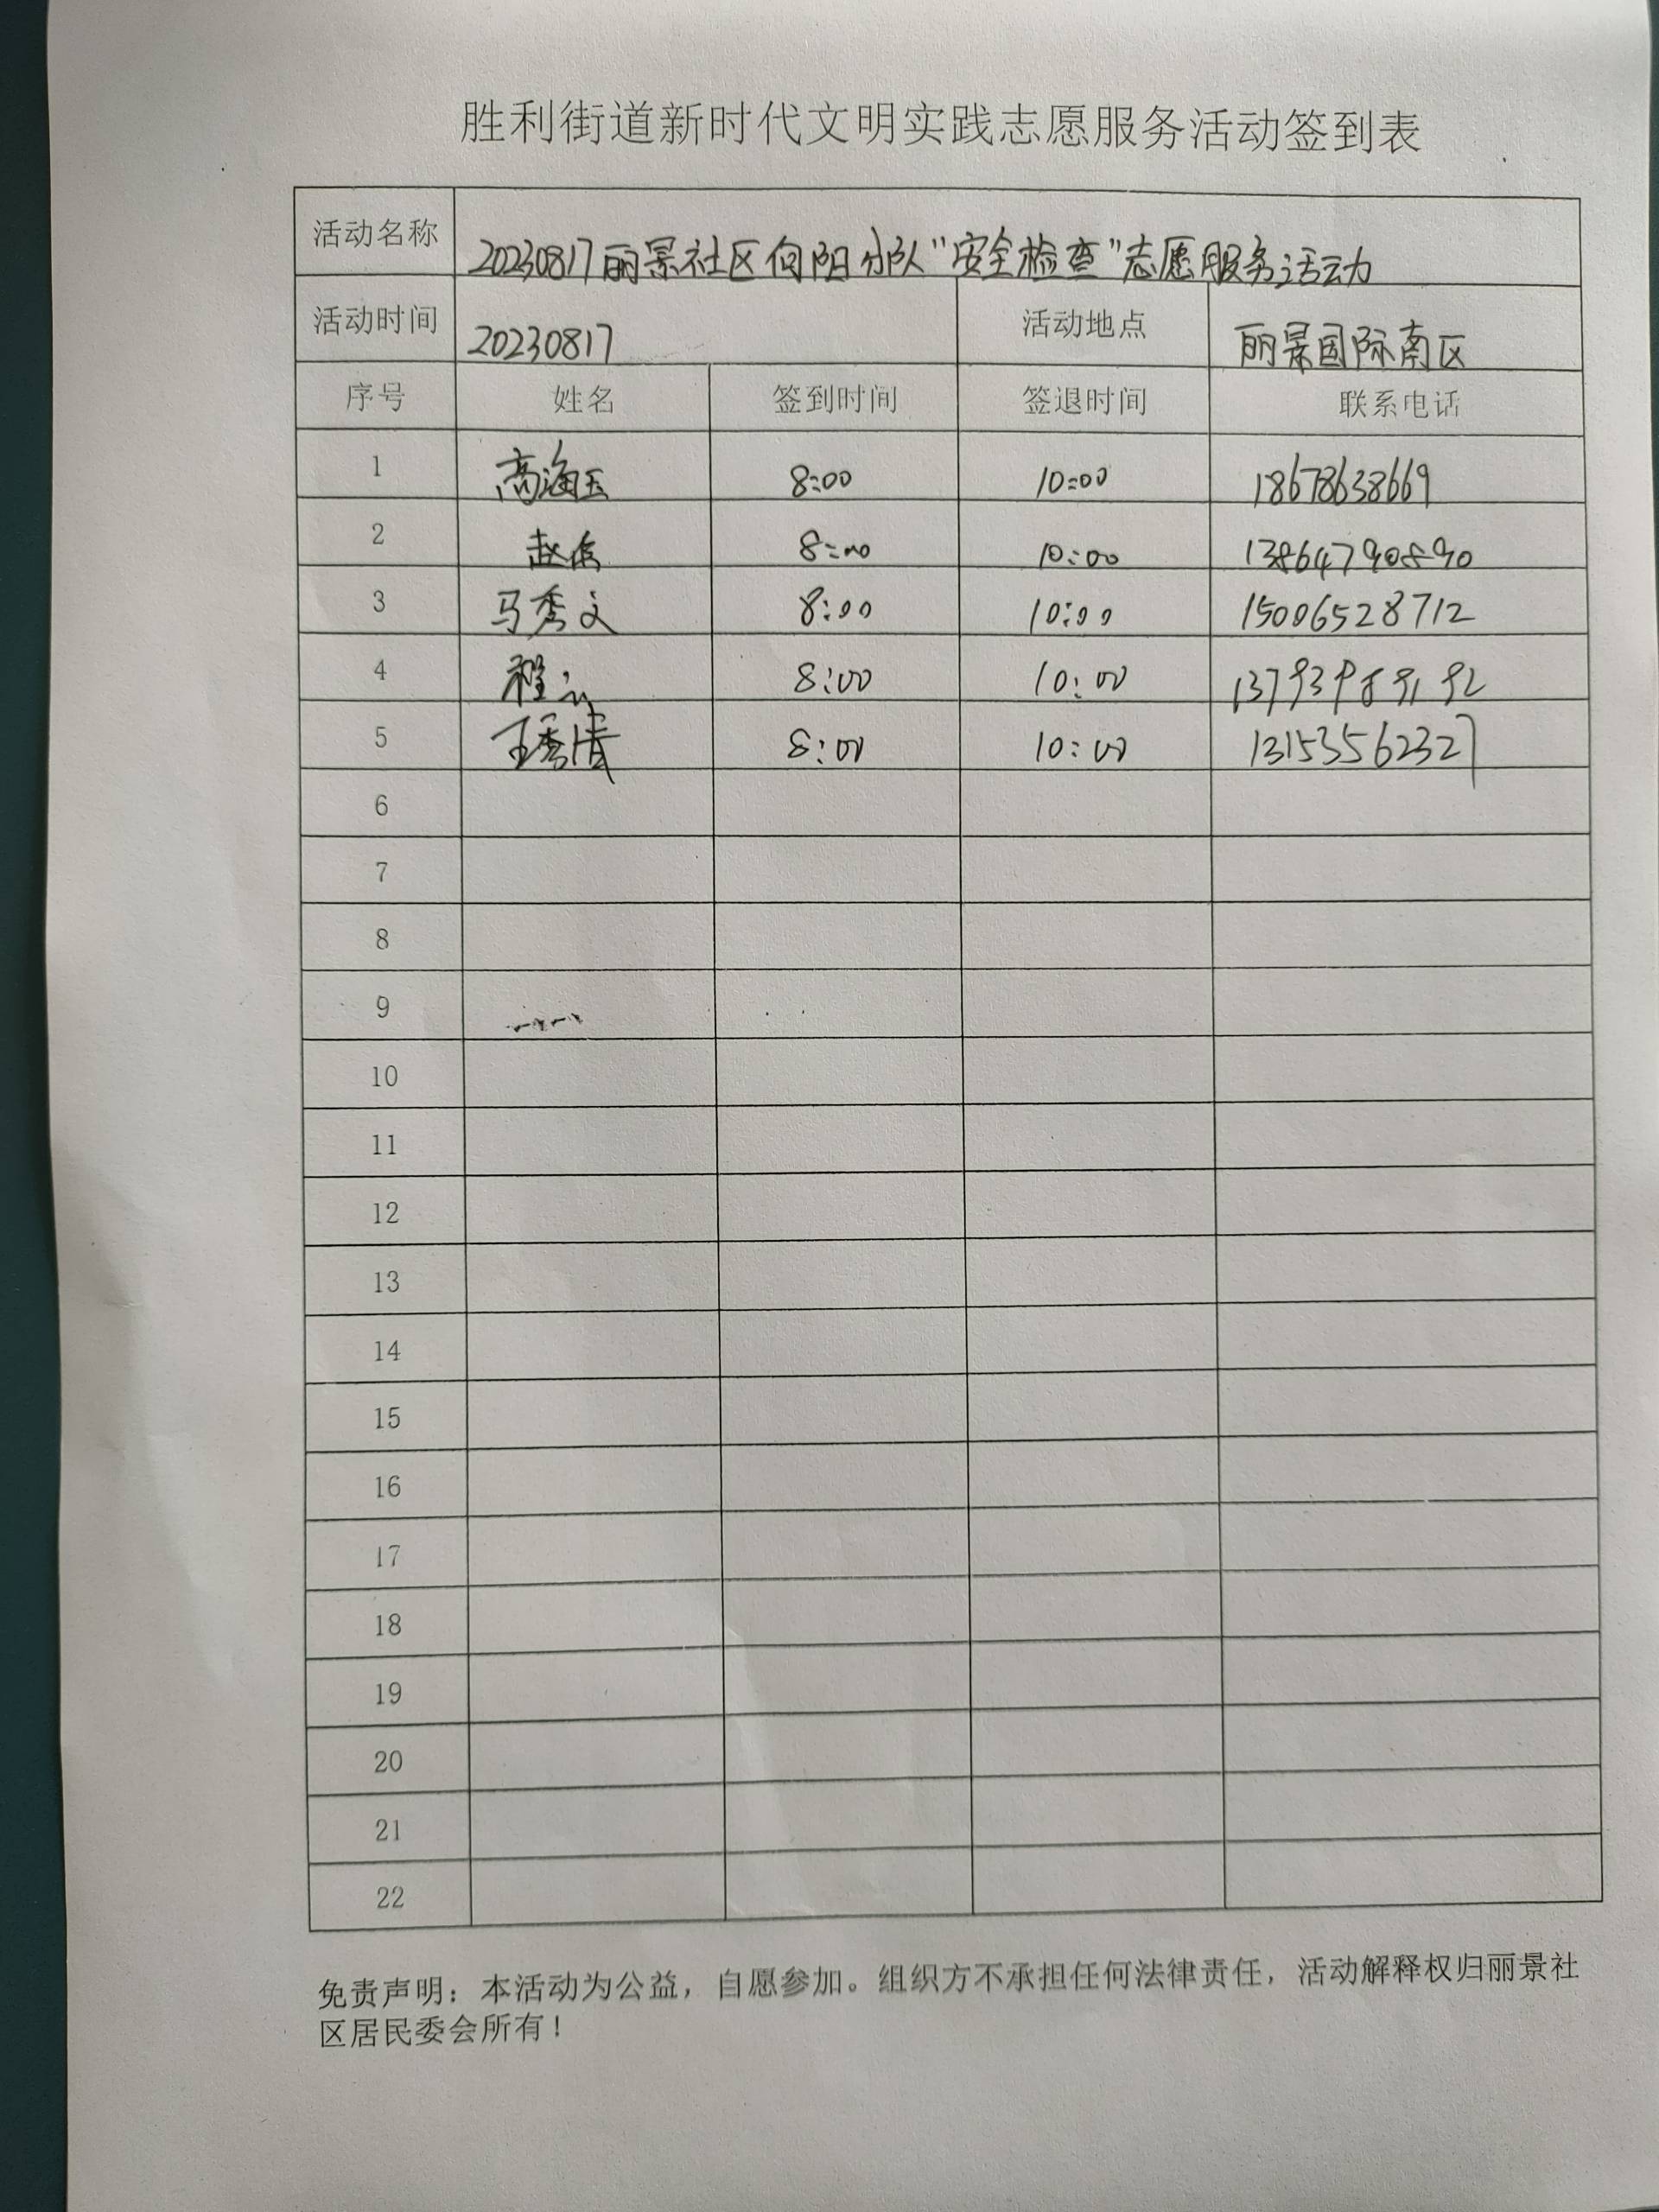 胜利街道新时代文明实践志愿服务活动签到表
活动名称 20230817丽景社区向阳分队“安全检查”志愿服务活动
活动时间 20230817 活动地点 丽景国际南区
序号 姓名 签到时间 签退时间 联系电话
1 高海玉 8:00 10:00 18678638669
2 赵 8:00 10:00 13864790890
3 马秀文 8:00 10:00 15006528712
4 程 8:00 10:00
5 王秀清 8:00 10:00 13153556237
6
7
8
9
10
11
12
13
14
15
16
17
18
19
20
21
22
免责声明：本活动为公益，自愿参加。组织方不承担任何法律责任，活动解释权归丽景社
区居民委会所有！